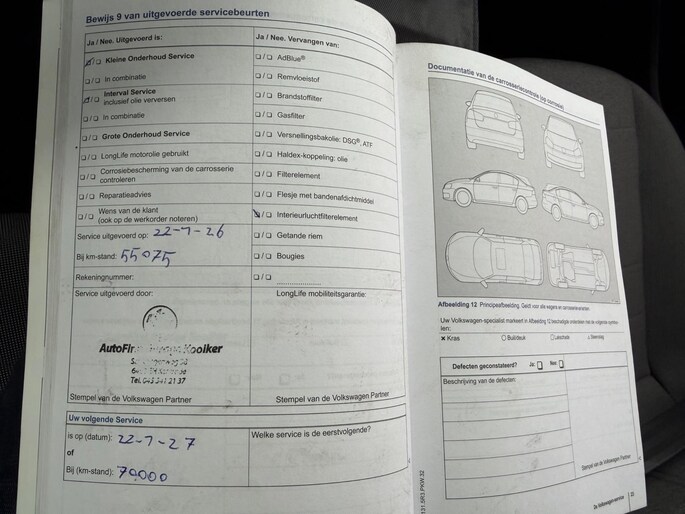 Bewijs 9 van uitgevoerde servicebeurten
Ja / Nee. Uitgevoerd is:
Kleine Onderhoud Service
In combinatie
Interval Service
inclusief olie verversen
In combinatie
Grote Onderhoud Service
LongLife motorolie gebruikt
Corrosiebescherming van de carrosserie
controleren
Reparatieadvies
Wens van de klant
(ook op de werkorder noteren)
Service uitgevoerd op: 22-7-26
Bij km-stand: 55075
Rekeningnummer:
Service uitgevoerd door:
AutoFirma Kooiker
Tel.
Stempel van de Volkswagen Partner
Ja / Nee. Vervangen van:
AdBlue®
Remvloeistof
Brandstoffilter
Gasfilter
Versnellingsbakolie: DSG®, ATF
Haldex-koppeling: olie
Filterelement
Flesje met bandenafdichtmiddel
Interieurluchtfilterelement
Getande riem
Bougies
LongLife mobiliteitsgarantie:
Stempel van de Volkswagen Partner
Uw volgende Service
is op (datum): 22-7-27
of
Bij (km-stand): 70.000
Welke service is de eerstvolgende?
131.5R3.PKW.32
Documentatie van de carrosseriecontrole (op corrosie)
Afbeelding 12 Principeafbeelding. Geldt voor alle wagens en carrosserievarianten.
Uw Volkswagen-specialist markeert in Afbeelding 12 beschadigde onderdelen met de volgende symbo-
len:
Kras
Buil/deuk
Lakschade
Steenslag
Defecten geconstateerd? Ja: Nee:
Beschrijving van de defecten:
Stempel van de Volkswagen Partner
De Volkswagenservice